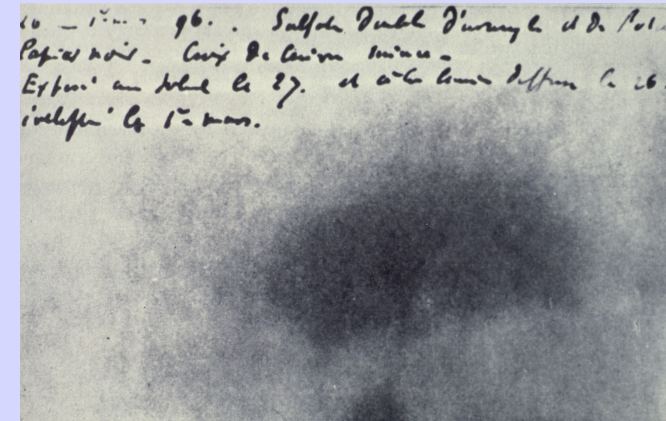 96. Sulfate Double d'uranyle et de Pot
Papier noir. Croix de Cuivre mince.
Exposé au soleil le 27. et à la lumière diffuse le 26.
Développé le 1er mars.